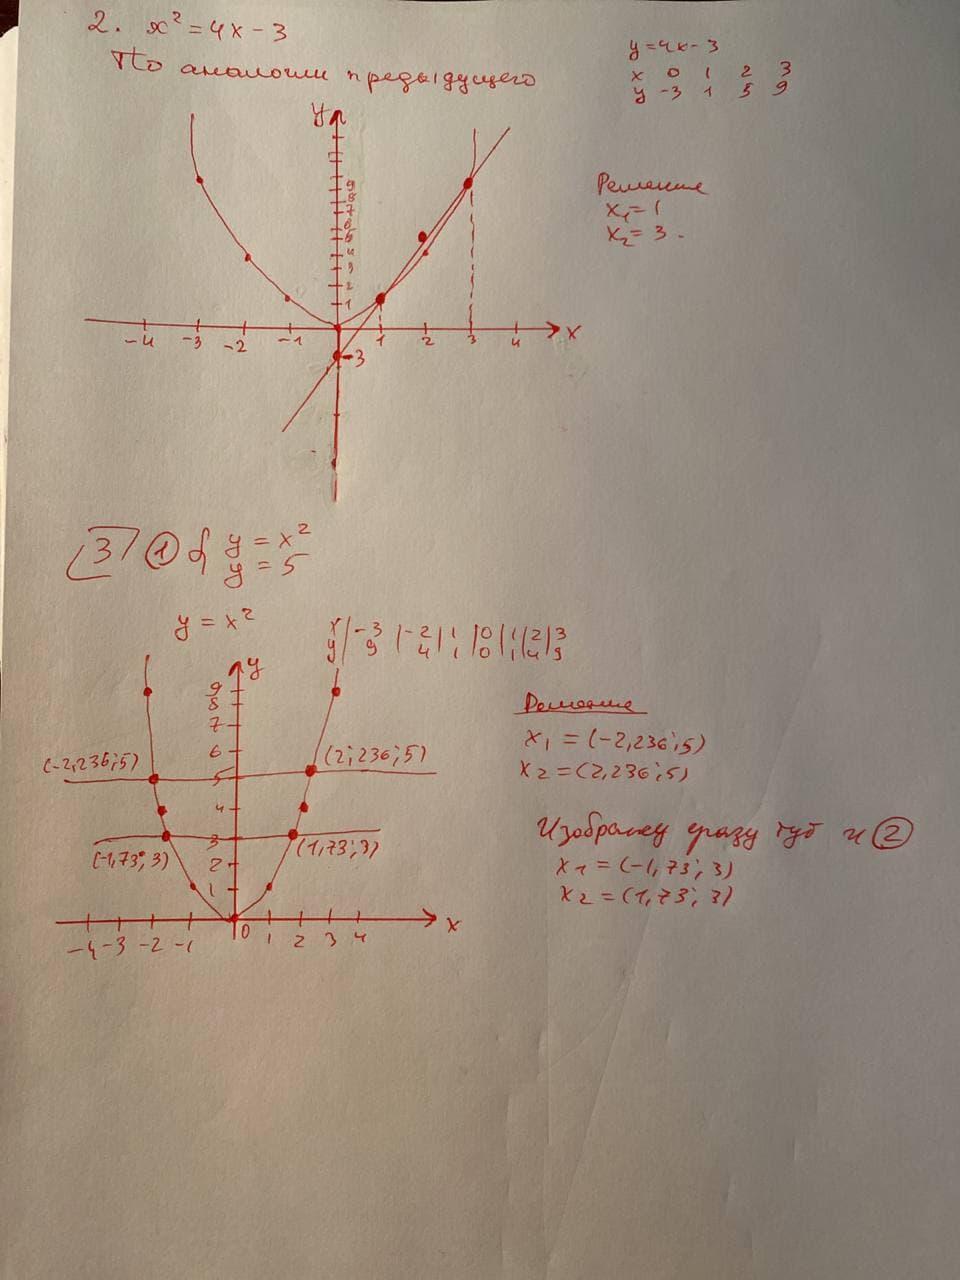 2. x² = 4x - 3
По аналогии предыдущего
y = 4x - 3
x 0 1 2 3
y -3 1 5 9
y
9
8
7
6
5
4
3
2
1
-4 -3 -2 -1 1 2 3 4 x
-3
Решение
x₁ = 1
x₂ = 3.
3 ① { y = x²
y = 5
y = x²
x | -3 | -2 | 1 | 0 | 1 | 2 | 3
y | 9 | 4 | 1 | 0 | 1 | 4 | 9
y
9
8
7
6
(-2,236; 5) 5 (2,236; 5)
4
(-1,73; 3) 3 (1,73; 3)
2
1
-4 -3 -2 -1 0 1 2 3 4 x
Решение
x₁ = (-2,236; 5)
x₂ = (2,236; 5)
Изображу сразу тут и ②
x₁ = (-1,73; 3)
x₂ = (1,73; 3)